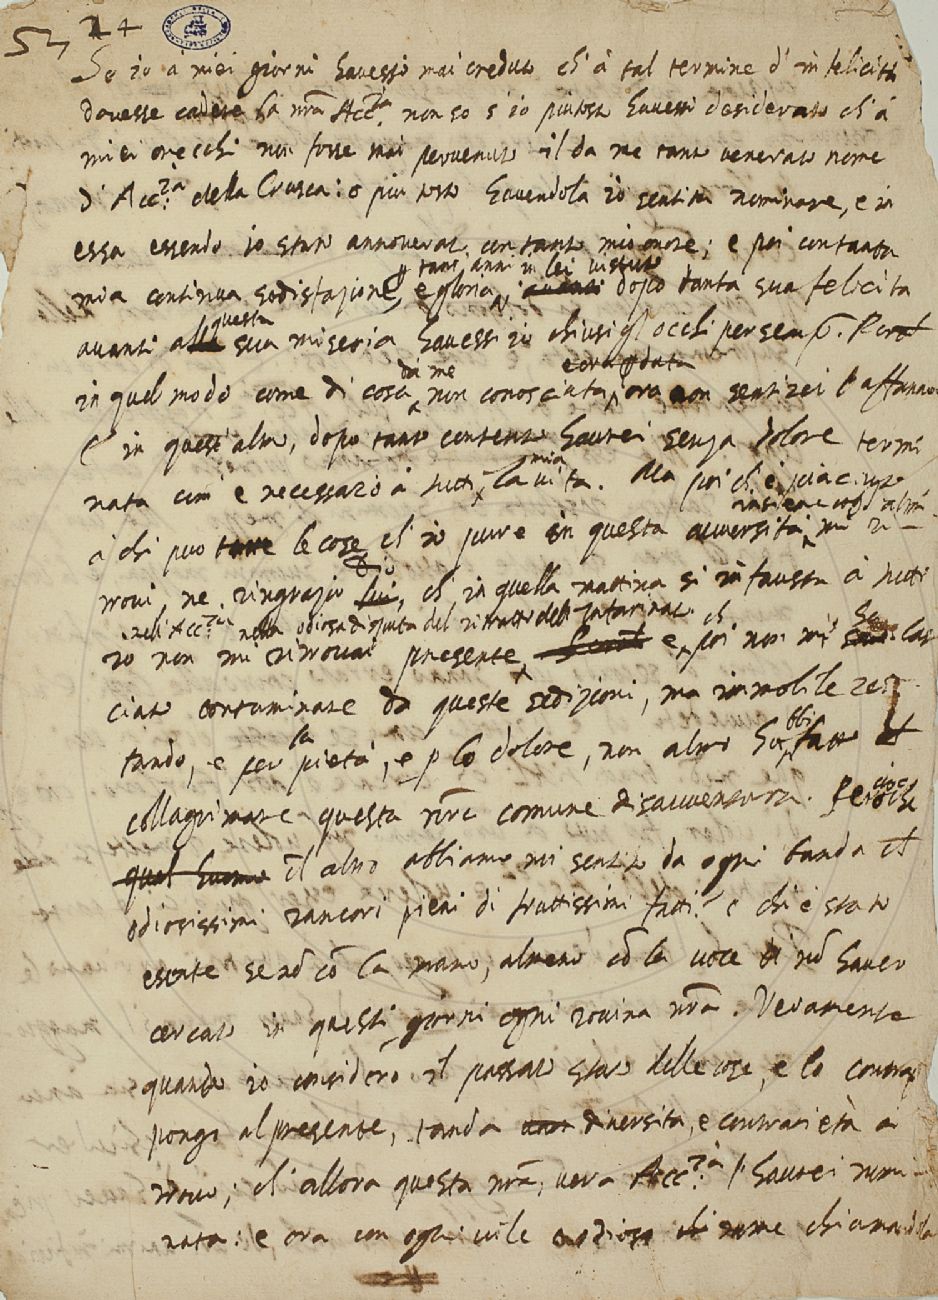 24
Se io a miei giorni havessi mai creduto ch' à tal termine d' infelicità
dovesse cadere la nrã Acc.ª non so s' io piutosto havessi desiderato ch' à
miei orecchi non fosse mai pervenuto il da me tanto venerato nome
d' Acc.ª della Crusca: o piu tosto havendola io sentita nominare, e in
essa essendo io stato annoverato con tanto mio onore; e poi con tanta
tant' anni in lei vissuto
mia continua sodisfazione, e gloria, dopo tanta sua felicità
questa
avanti sua miseria havessi io chiusi gl' occhi per sempre.
da me
in quel modo come di cosa non conosciuta, ora non sentirei l' affanno
e in quest' altro, dopo tanto contento haverei senza dolore termi
mia
nata com' è necessario à tutti, la vita. Ma poi ch' è piaciuto
insieme con
à chi puo le cose ch' io pure in questa avversità mi ri
trovi, ne ringrazio, ch' in quella mattina si infausta à tutti
nell' Acc.ª nella odiosa disputa del ritratto dell' Infarinato ch
io non mi ritrovai presente e poi non mi las
ciato contaminare da queste sedizioni, ma immobile res
la
tando, e per pietà, e p lo dolore, non altro fatto
collagrimare questa nrã comune disavventura.
quel huomo altro abbiamo noi sentito da ogni banda ch
odiosissimi rancori pieni di bruttissimi fatti? e chi è stato
esente se nõ cõ la mano, almeno cõ la voce di nõ haver
cercato in questi giorni ogni rovina nrã. Veramente
quando io considero il passato stato delle cose, e lo contrap
pongo al presente, tanta diversità, e contrarietà ci
trovo; ch' allora questa nrã, vera Acc.ª l' haverei nomi
nata: e ora con ogni vile odioso nome chiamandola